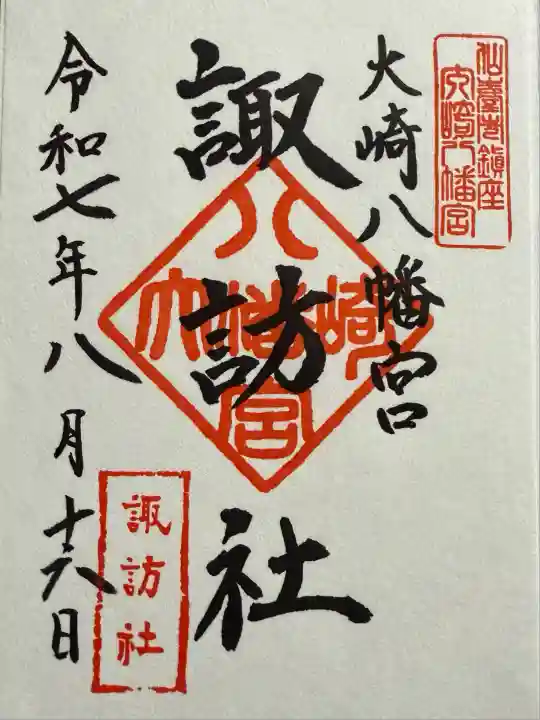 仙臺市鎮座
大崎八幡宮
大崎八幡宮
諏訪社
八幡宮
大崎
諏訪社
令和七年八月十六日